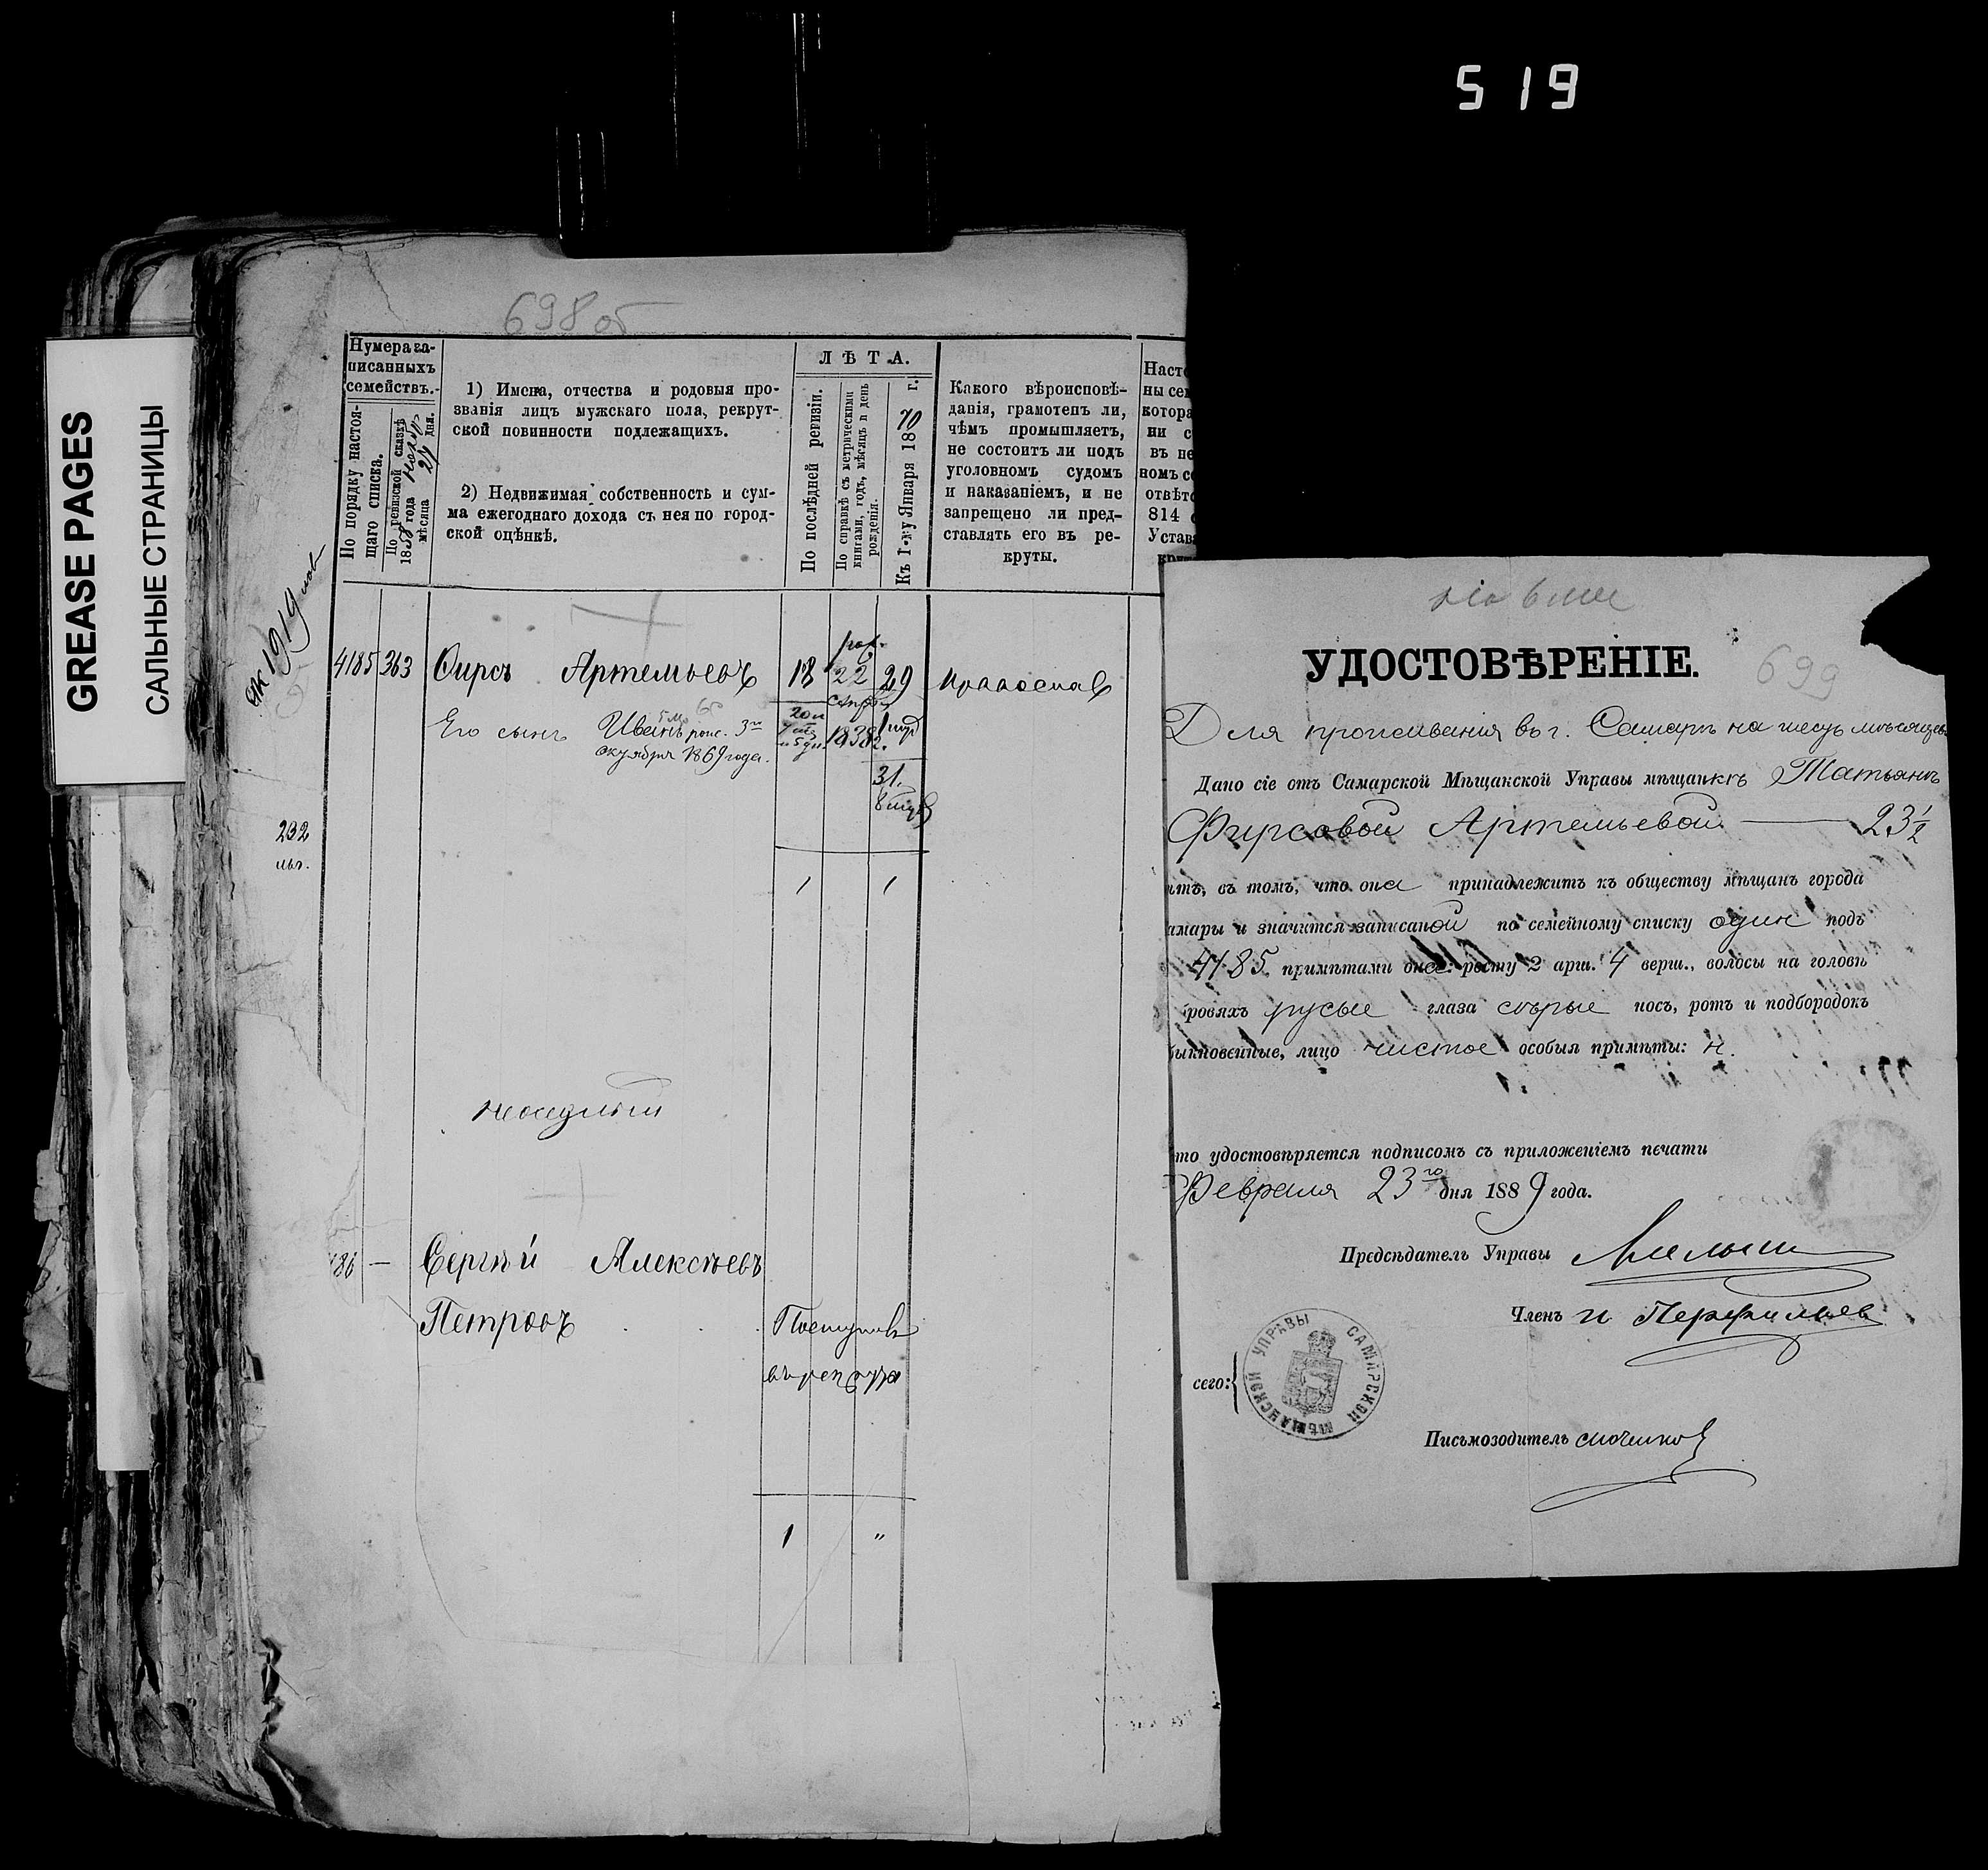 519
GREASE PAGES
САЛЬНЫЕ СТРАНИЦЫ
698 об
Нумера за-
писанныхъ
семействъ.
По порядку настоя-
щаго списка.
По ревизской сказкѣ
1858 года
мѣсяца дня.
1) Имена, отчества и родовыя про-
званія лицъ мужскаго пола, рекрут-
ской повинности подлежащихъ.
2) Недвижимая собственность и сум-
ма ежегоднаго дохода съ нея по город-
ской оцѣнкѣ.
ЛѢТА.
По послѣдней ревизіи.
По справкѣ съ метрическими
книгами, годъ, мѣсяцъ и день
рожденія.
Къ 1-му Января 1870 г.
Какого вѣроисповѣ-
данія, грамотенъ ли,
чѣмъ промышляетъ,
не состоитъ ли подъ
уголовномъ судомъ
и наказаніемъ, и не
запрещено ли пред-
ставлять его въ ре-
круты.
Насто
ны сем
котора
ни с
въ не
номъ со
отвѣтс
814 с
Устава
4185 363 Фирсъ Артемьевъ 18 22 29 православ
Его сынъ Иванъ рожд. 3го
октября 1869 года.
1838
31.
232
1 1
186 — Сергѣй Алексѣевъ
Петровъ Поступилъ
въ рекруты
1 "
699
УДОСТОВѢРЕНІЕ.
Для проживанія въ г. Самарѣ на шесть мѣсяцевъ
Дано сіе отъ Самарской Мѣщанской Управы мѣщанкѣ Татьянѣ
Фирсовой Артемьевой — 23½
лѣтъ, въ томъ, что она принадлежитъ къ обществу мѣщанъ города
амары и значится записаной по семейному списку один подъ
4185 примѣтами она: росту 2 арш. 4 верш., волосы на головѣ
бровяхъ русые глаза сѣрые носъ, ротъ и подбородокъ
быкновенные, лицо чистое особыя примѣты: н.
то удостовѣряется подписомъ съ приложеніемъ печати
Февраля 23го дня 1889 года.
Предсѣдатель Управы
Членъ И Перфильев
сего:
САМАРСКОЙ МѢЩАНСКОЙ УПРАВЫ
Письмоводитель